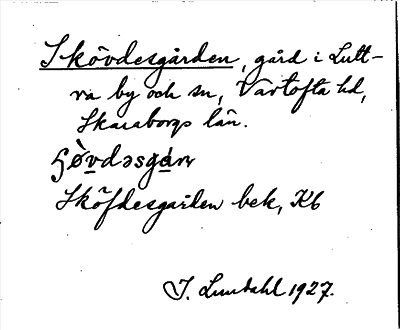 Skövdesgården, gård i Lutt-
ra by och sn, Vartofta hd,
Skaraborgs län.
Sköfdesgården bek, Kb
I. Lundahl 1927.